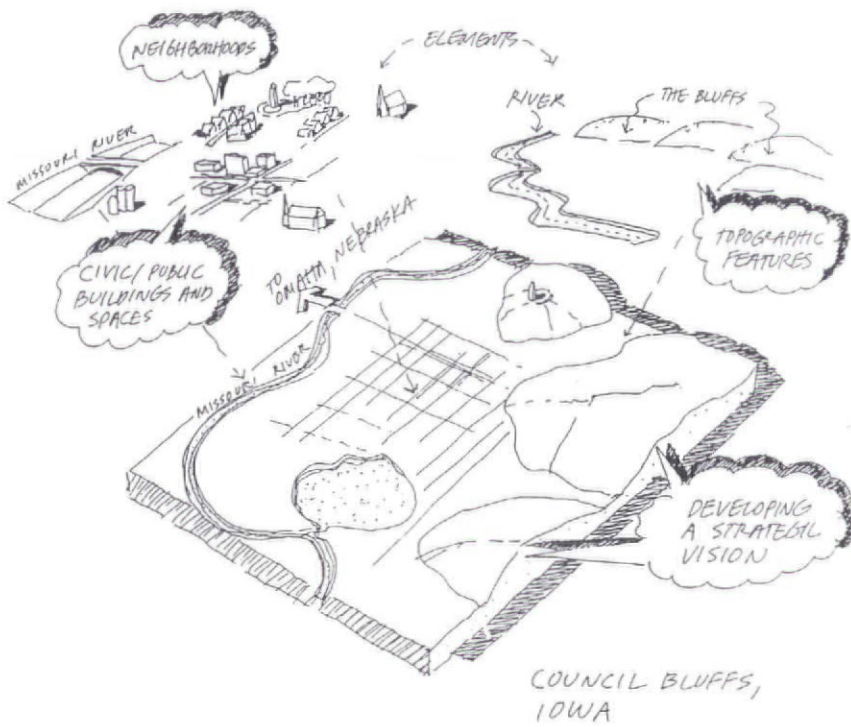 NEIGHBORHOODS
ELEMENTS
RIVER
THE BLUFFS
MISSOURI RIVER
TOPOGRAPHIC
FEATURES
CIVIC/PUBLIC
BUILDINGS AND
SPACES
TO
OMAHA, NEBRASKA
MISSOURI RIVER
DEVELOPING
A STRATEGIC
VISION
COUNCIL BLUFFS,
IOWA